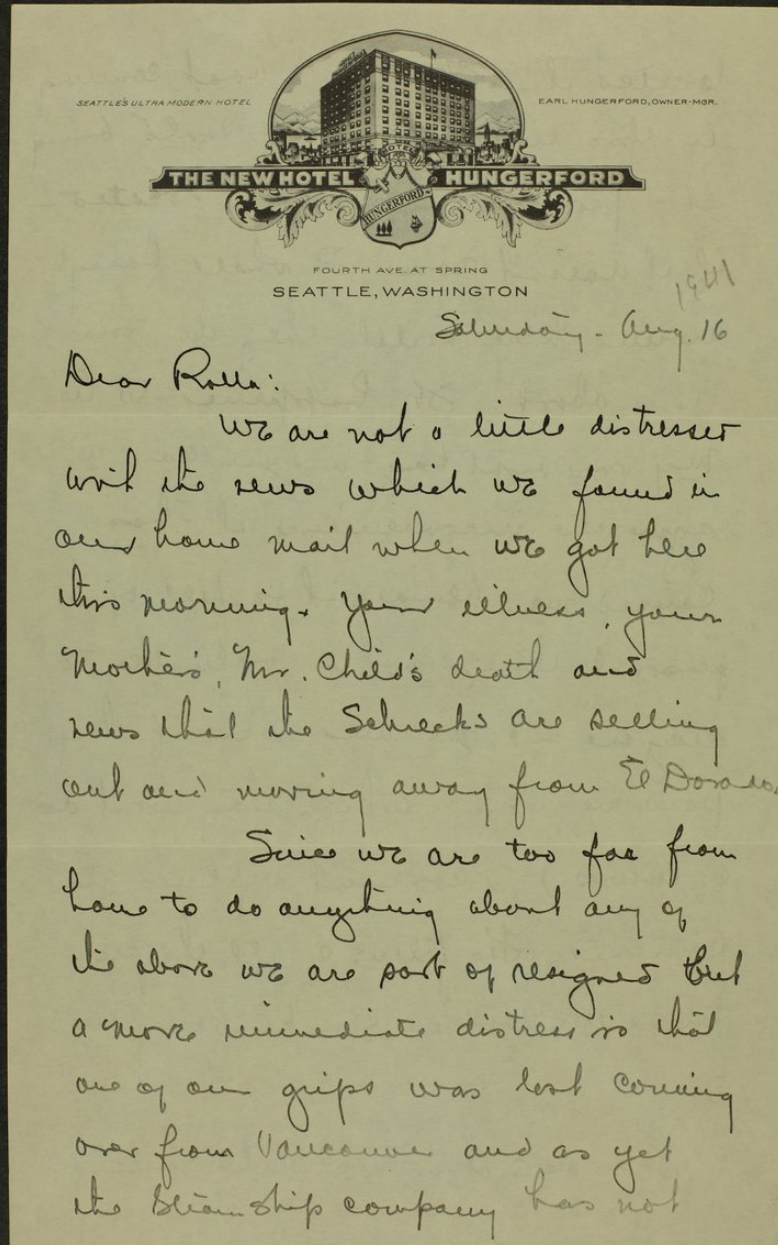 SEATTLE'S ULTRA MODERN HOTEL
EARL HUNGERFORD, OWNER-MGR.
HOTEL
THE NEW HOTEL HUNGERFORD
HUNGERFORD
FOURTH AVE. AT SPRING
SEATTLE, WASHINGTON
1941
Saturday - Aug. 16
Dear Rolla:
We are not a little distressed
with the news which we found in
our home mail when we got here
this morning. Your illness, your
Mother's, Mr. Child's death and
news that the Schrecks are selling
out and moving away from El Dorado.
Since we are too far from
home to do anything about any of
the above we are sort of resigned but
a more immediate distress is that
one of our grips was lost coming
over from Vancouver and as yet
the Steamship company has not